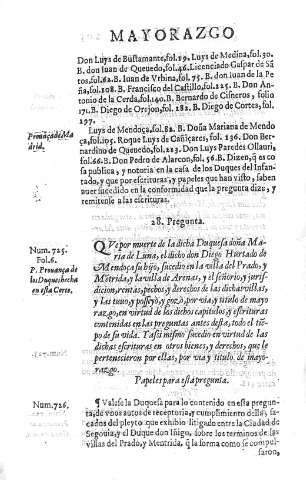 MAYORAZGO
Don Luys de Bustamante, fol.29. Luys de Medina, fol.30.
B. don Iuan de Quevedo, fol.46. Licenciado Gaspar de Sã-
tos, fol.62. B. Iuan de Vrbina, fol.75. B. don Iuan de la Pe-
ña, fol.108. B. Francisco del Castillo, fol.125. B. Don An-
tonio de la Cerda, fol.140. B. Bernardo de Cisneros, folio
171. B. Diego de Orejon, fol. 182. B. Diego de Cortes, fol.
197.
Prouança de Ma-
drid.
Luys de Mendoça, fol.82. B. Doña Mariana de Mendo-
ça, fol.105. Roque Luys de Cañiçares, fol. 136. Don Ber-
nardino de Quevedo, fol.213. Don Luys Paredes Ollauri,
fol.66. B. Don Pedro de Alarcon, fol.56. B. Dizen, q̃ es co
sa publica, y notoria en la casa de los Duques del Infan-
tado, y que por escrituras, y papeles que han visto, saben
auer sucedido en la conformidad que la pregunta dize, y
remitense a las escrituras.
28. Pregunta.
Num. 725.
Fol.6.
P. Prouança de
los Duques hecha
en esta Corte.
QVe por muerte de la dicha Duquesa doña Ma-
ria de Luna, el dicho don Diego Hurtado de
Mendoça su hijo, sucedio en la villa del Prado, y
Metrida, y la villa de Arenas, y el señorio, y juris-
dicion, rentas, pechos, y derechos de las dichas villas,
y las tuuo, posseyò, y gozò, por via, y titulo de mayo
razgo, en virtud de los dichos capitulos, y escrituras
contenidas en las preguntas antes desta, todo el tiẽ-
po de su vida. Y assi mismo sucedio en virtud de las
dichas escrituras en otros bienes, y derechos, que le
pertenecieron por ellas, por via, y titulo de mayo-
razgo.
Papeles para esta pregunta.
Num. 726.
¶ Valese la Duquesa para lo contenido en esta pregun-
ta, de vnos autos de receptoria, y cumplimiento dellos, sa-
cados del pleyto que exhibiò litigado entre la Ciudad de
Segouia, y el Duque don Iñigo, sobre los terminos de las
villas del Prado, y Mentrida, q̃ la forma como se compul-
saron,